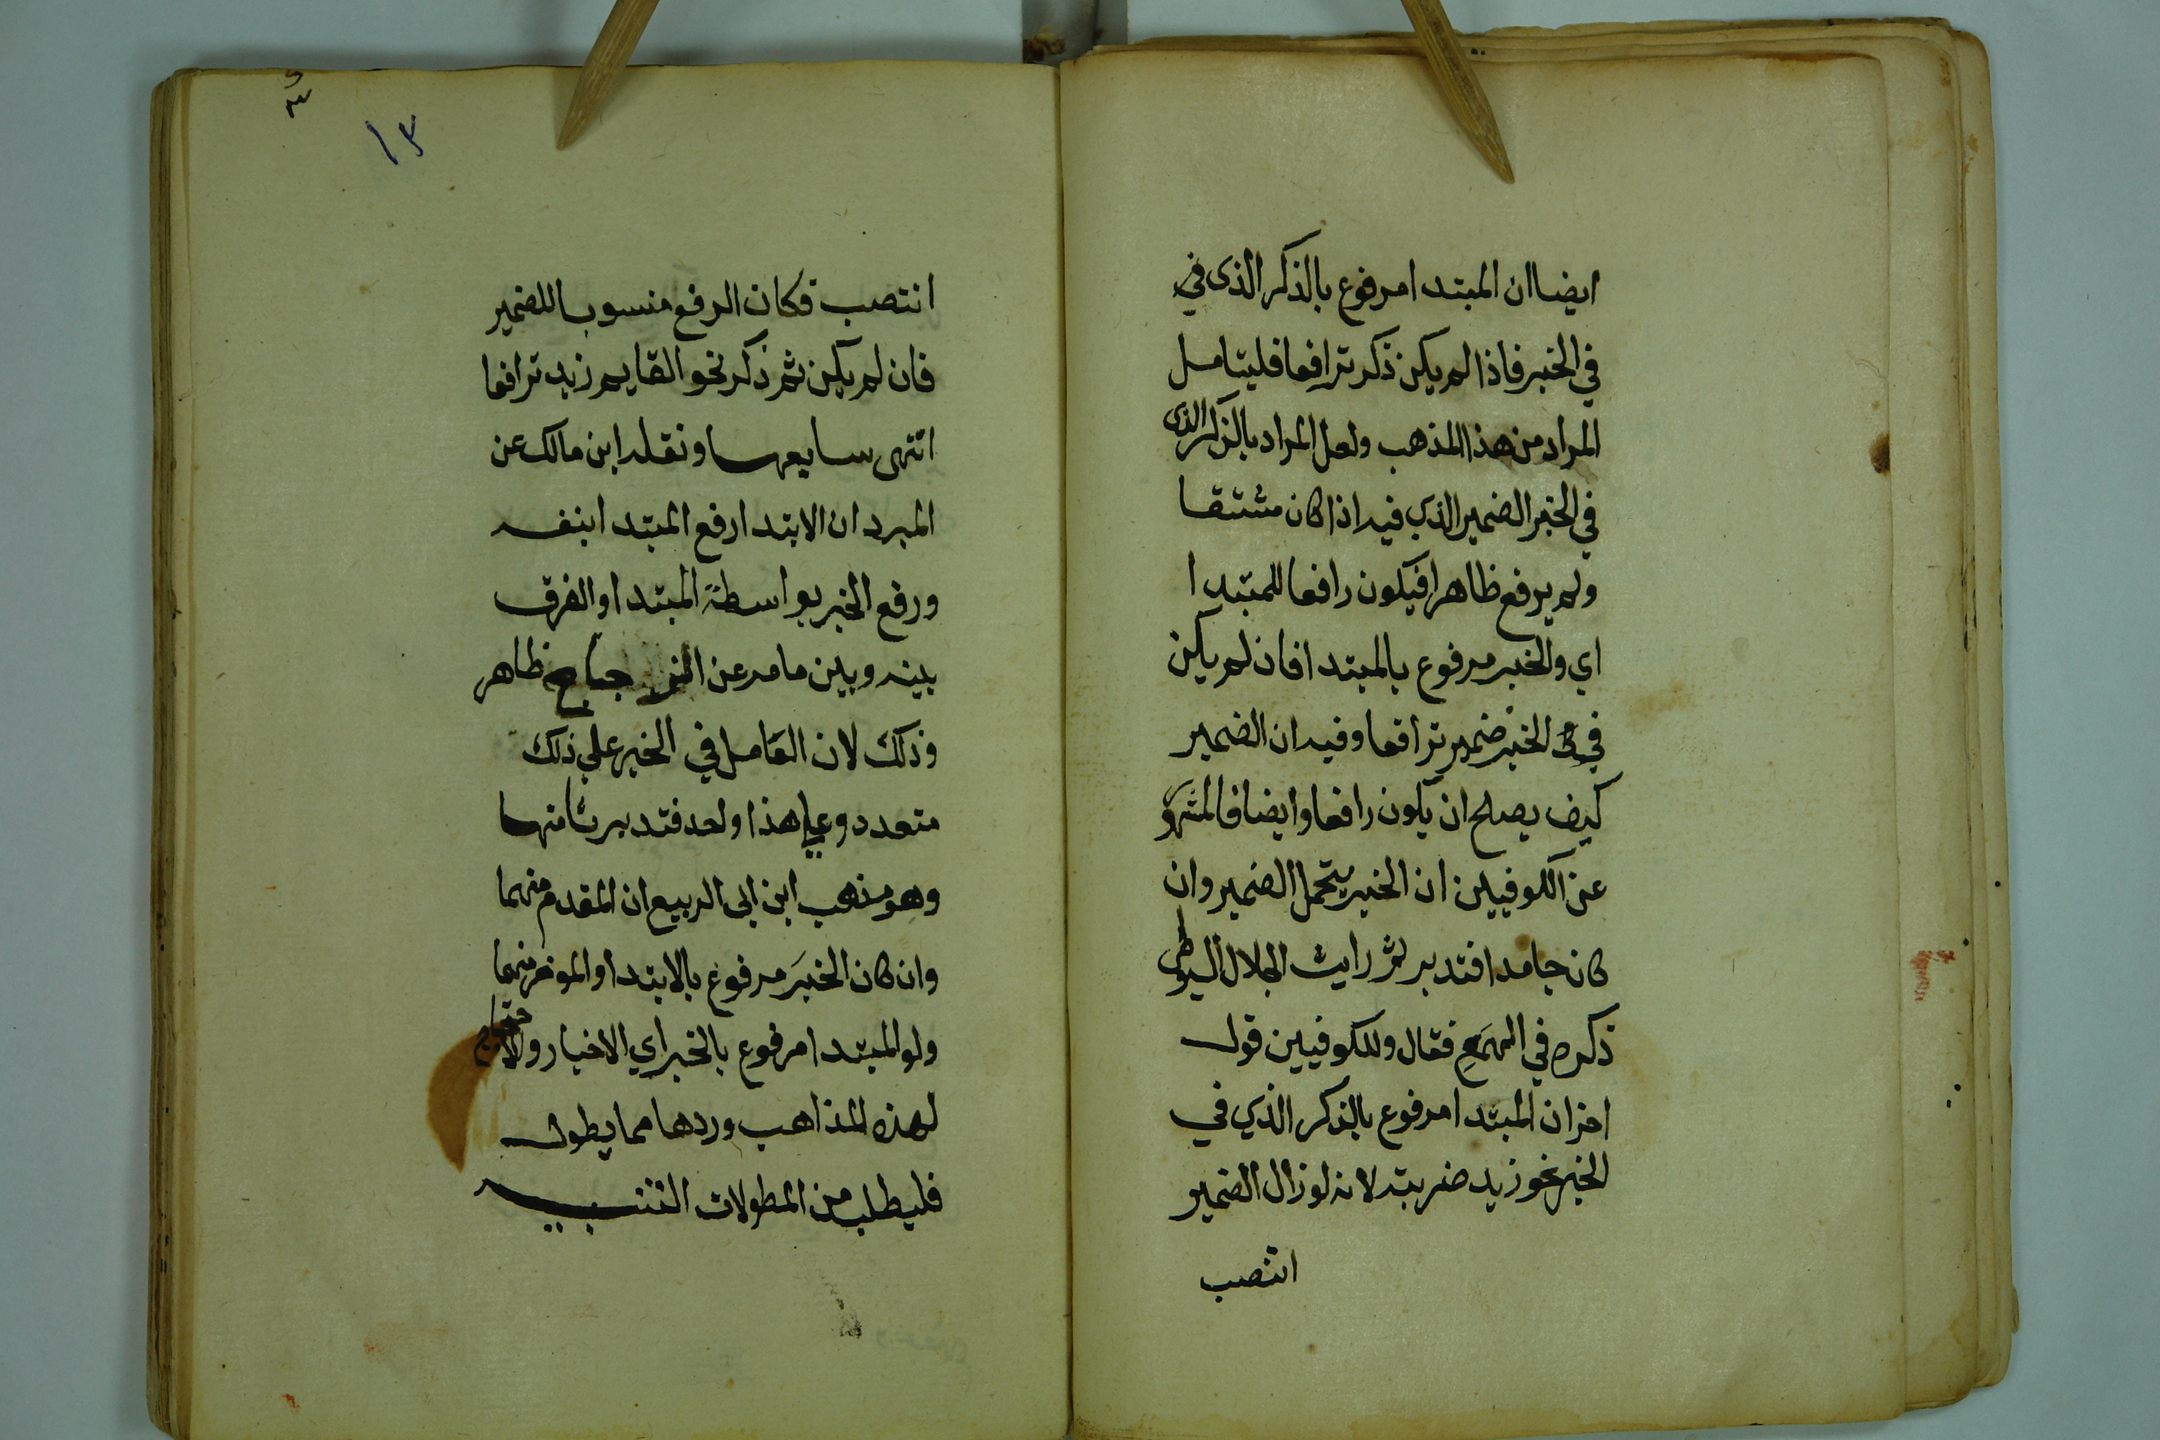 ايضا ان المبتدا مرفوع بالذكر الذى في
في الخبر فاذا لم يكن ذكر ترافعا فليتامل
المراد من هذا المذهب ولعل المراد بالذكر الذى
في الخبر الضمير الذي فيه اذا كان مشتقا
ولم يرفع ظاهرا فيكون رافعا للمبتدا
اي والخبر مرفوع بالمبتدا فان لم يكن
في الخبر ضمير ترافعا وفيه ان الضمير
كيف يصلح ان يكون رافعا وايضا فالمشهو
عن الكوفيين ان الخبر يتحمل الضمير وان
كان جامدا فتدبر ثم رايت الجلال السيوطى
ذكره في الهمع فقال وللكوفيين قول
اخر ان المبتدا مرفوع بالذكر الذي في
الخبر نحو زيد ضربته لانه لو زال الضمير
انتصب
١٣
انتصب فكان الرفع منسوبا للضمير
فان لم يكن ثم ذكر نحو القايم زيد ترافعا
انتهى سابعها ونقله ابن مالك عن
المبرد ان الابتدا رفع المبتدا بنفسه
ورفع الخبر بواسطة المبتدا والفرق
بينه وبين ما مر عن الزجاج ظاهر
وذلك لان العامل في الخبر علي ذلك
متعدد وعلي هذا واحد فتدبر ثامنها
وهو مذهب ابن ابى الربيع ان المقدم منهما
وان كان الخبر مرفوع بالابتدا والموخر منهما
ولو المبتدا مرفوع بالخبر اي الاخبار والاحتجاج
لهذه المذاهب وردها مما يطول
فليطلب من المطولات التنبيه